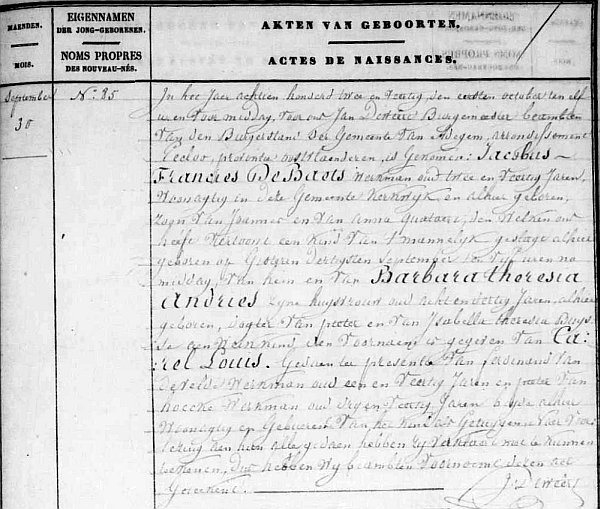 MAENDEN.
MOIS.
EIGENNAMEN
DER JONG-GEBORENEN.
NOMS PROPRES
DES NOUVEAU-NÉS.
AKTEN VAN GEBOORTEN.
ACTES DE NAISSANCES.
September
30
N: 85
In het Jaer achtien honderd twee en veertig, den eersten october ten elf
uren voor middag, voor ons Jan Burgemeester beambten
van den Burgerstand der Gemeente van arrondissement
Eecloo, provintie oostvlaenderen, is Gekomen: Jacobus
Francies De Baets Werkman oud twee en veertig Jaren,
Woonagtig in deze Gemeente en alhier geboren,
zoon van Joannes en van Anna den welken ons
heeft vertoont een kind van t mannelyk geslagt alhier
geboren op Gisteren dertigsten september ten vyf uren na
middag, van hem en van Barbara theresia
Andries zyne huysvrouw oud acht en dertig Jaren, alhier
geboren, dogter van pieter en van Isabella theresia Buys
se aen den voornaem is gegeven van Ca-
rel Louis. Gedaen ter presentie van ferdinand van
de velde Werkman oud een en veertig Jaren en pieter van
hoecke Werkman oud veertig Jaren beyde alhier
Woonagtig en Gebueren van het kind als Getuygen. Naer voor
lezing aen hun alle gedaen hebben zy verklaert niet te kunnen
hebben wy beambten voornoemt deze act
Geteekent.